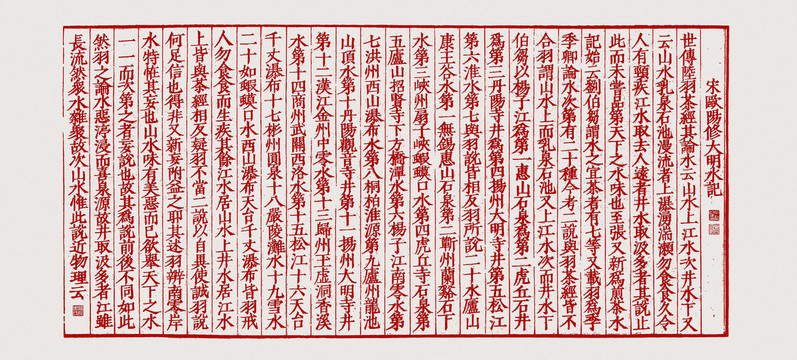 宋歐陽修大明水記
世傳陸羽茶經其論水云山水上江水次井水下又
云山水乳泉石池漫流者上瀑湧湍漱勿食食久令
人有頸疾江水取去人遠者井水取汲多者其說止
此而未嘗品第天下之水味也至張又新爲煎茶水
記始云劉伯芻謂水之宜茶者有七等又載羽爲季
季卿論水次第有二十種今考二說與羽茶經皆不
合羽謂山水上而乳泉石池又上江水次而井水下
伯芻以楊子江爲第一惠山石泉爲第二虎丘石井
爲第三丹陽寺井爲第四揚州大明寺井第五松江
第六淮水第七與羽說皆相反羽所說二十水廬山
康王谷水第一無錫惠山石泉第二蘄州蘭谿石下
水第三峽州扇子峽蝦蟆口水第四虎丘寺石泉第
五廬山招賢寺下方橋潭水第六楊子江南零水第
七洪州西山瀑布水第八桐柏淮源第九廬州龍池
山頂水第十丹陽觀音寺井第十一揚州大明寺井
第十二漢江金州中零水第十三歸州玉虛洞香溪
水第十四商州武關西洛水第十五松江十六天台
千丈瀑布十七彬州圓泉十八嚴陵灘水十九雪水
二十如蝦蟆口水西山瀑布天台千丈瀑布皆羽戒
人勿食食而生疾其餘江水居山水上井水居江水
上皆與茶經相反疑羽不當二說以自異使誠羽說
何足信也得非又新妄附益之耶其述羽辨南零岸
水特怪其妄也山水味有美惡而已欲舉天下之水
一一而次第之者妄說也故其爲說前後不同如此
然羽之論水惡渟浸而喜泉源故井取汲多者江雖
長流然衆水雜聚故次山水惟此說近物理云